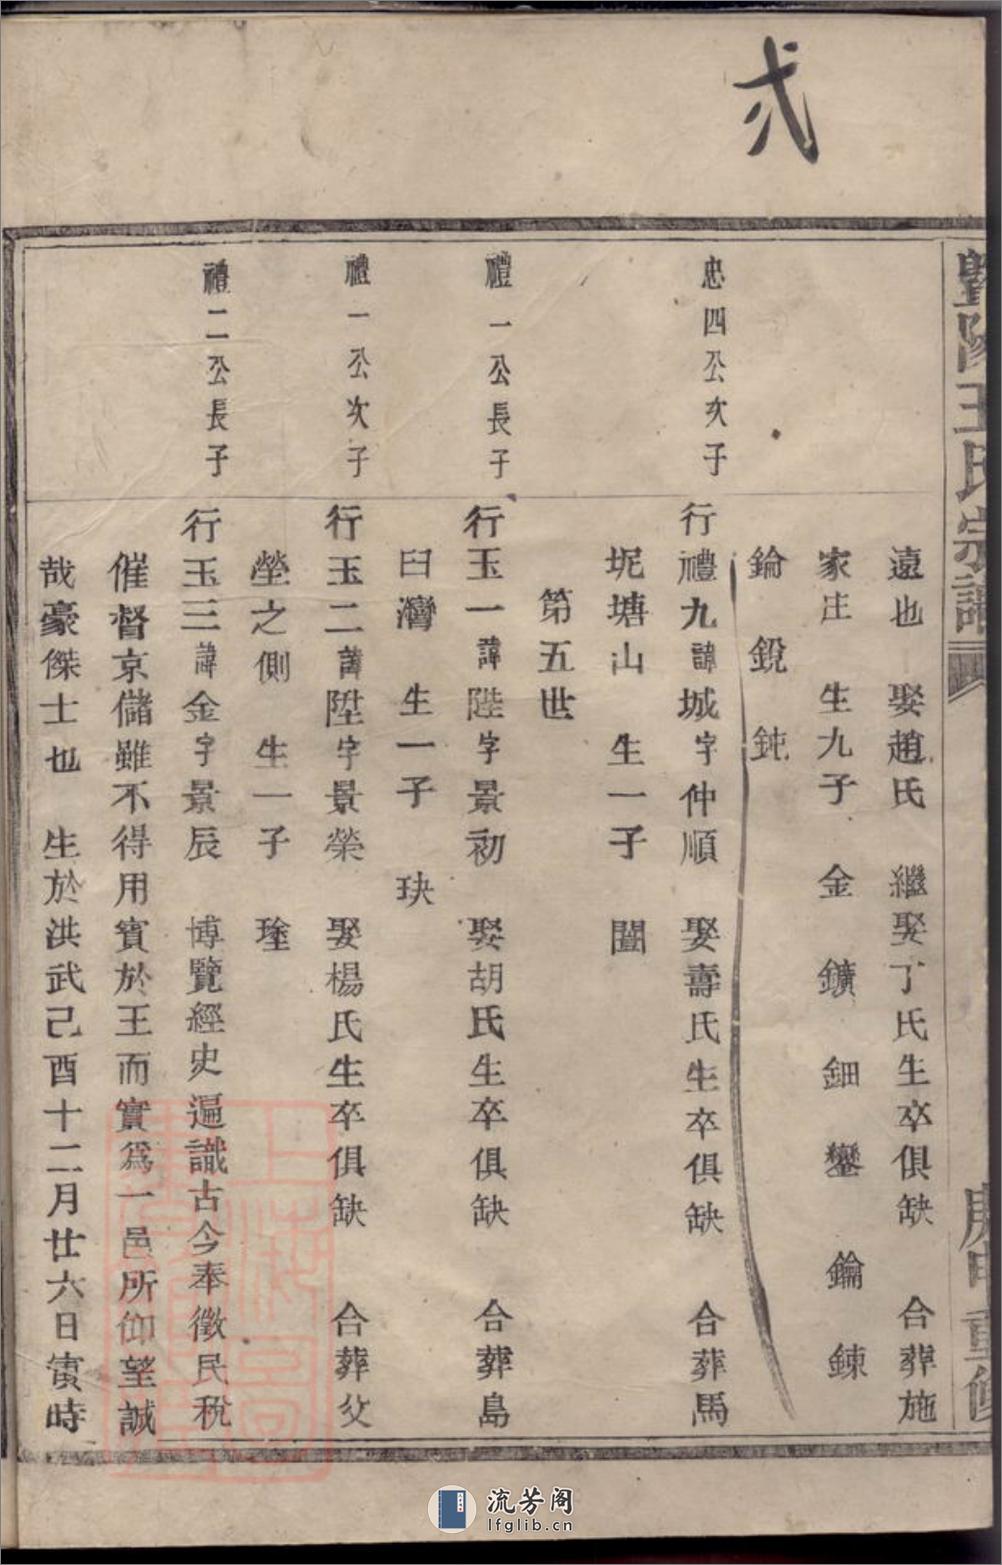 弍
暨陽王氏宗譜
庚申重修
遠也 娶趙氏 繼娶丁氏生卒俱缺 合葬施
家庄 生九子 金 鑛 鈿 鑾 鑰 鍊
錀 銳 鈍
忠四公次子
行禮九諱城字仲順 娶壽氏生卒俱缺 合葬馬
坭塘山 生一子 闓
第五世
禮一公長子
行玉一諱陛字景初 娶胡氏生卒俱缺 合葬島
臼灣 生一子 玦
禮一公次子
行玉二諱陞字景榮 娶楊氏生卒俱缺 合葬父
塋之側 生一子 瑬
禮二公長子
行玉三諱金字景辰 博覽經史遍識古今奉徵民稅
催督京儲雖不得用賓於王而實爲一邑所仰望誠
哉豪傑士也 生於洪武己酉十二月廿六日寅時
流芳阁
lfglib.cn